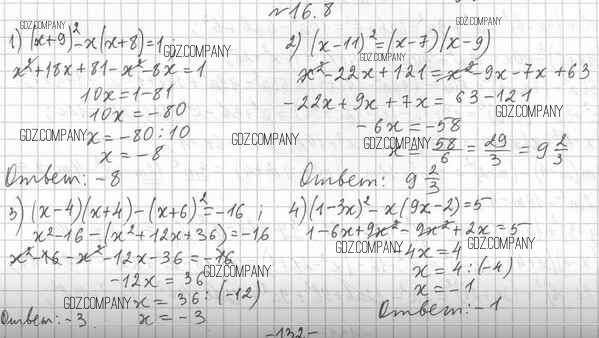 №16.8
GDZ.COMPANY
GDZ.COMPANY
1) (x+9)² - x(x+8) = 1;
GDZ.COMPANY
x² + 18x + 81 - x² - 8x = 1
10x = 1 - 81
10x = -80
GDZ.COMPANY
x = -80 : 10
x = -8
Ответ: -8
2) (x-11)² = (x-7)(x-9)
GDZ.COMPANY
x² - 22x + 121 = x² - 9x - 7x + 63
-22x + 9x + 7x = 63 - 121
GDZ.COMPANY
GDZ.COMPANY
-6x = -58
GDZ.COMPANY
x = 58/6 = 29/3 = 9 2/3
Ответ: 9 2/3
3) (x-4)(x+4) - (x+6)² = -16;
x² - 16 - (x² + 12x + 36) = -16
x² - 16 - x² - 12x - 36 = -16
GDZ.COMPANY
-12x = 36
GDZ.COMPANY
x = 36 : (-12)
x = -3
Ответ: -3.
4) (1-3x)² - x(9x-2) = 5
1 - 6x + 9x² - 9x² + 2x = 5
GDZ.COMPANY
GDZ.COMPANY
-4x = 4
x = 4 : (-4)
x = -1
Ответ: -1
-132-